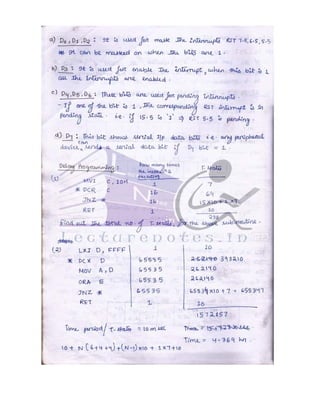 a) D0, D1, D2 : It is used for mask the Interrupts RST 7.5, 6.5, 5.5
* It can be masked on when the bits are 1.
b) D3 : It is used for enable the Interrupt, when this bit is 1
all the Interrupts are enabled.
c) D4, D5, D6 : These bits are used for pending Interrupts.
- If one of the bit is 1, the corresponding RST Interrupt is in
pending state. i.e. if I5.5 is '1' RST 5.5 is pending.
d) D7 : This bit shows serial I/p data bits i.e. any peripheral
device can send a serial data bit if D7 bit = 1.
Delay Programming : How many times T-States
the instruction is executing
(1) MVI C, 10H 1 7
* DCR C 16 64
JNZ * 16 15×10 + 1×7
RET 1 10
238
Find out the total no. of T-states, for the above subroutine.
LectureNotes.in
(2) LXI D, FFFF 1 10
* DCX D 65535 393210
MOV A, D 65535 262140
ORA E 65535 262140
JNZ * 65535 65534×10 + 7 = 655347
RET 1 10
1572857
Time period/ T-state
Time =
10 + N (6+4+4) + (N-1)×10 + 1×7+10